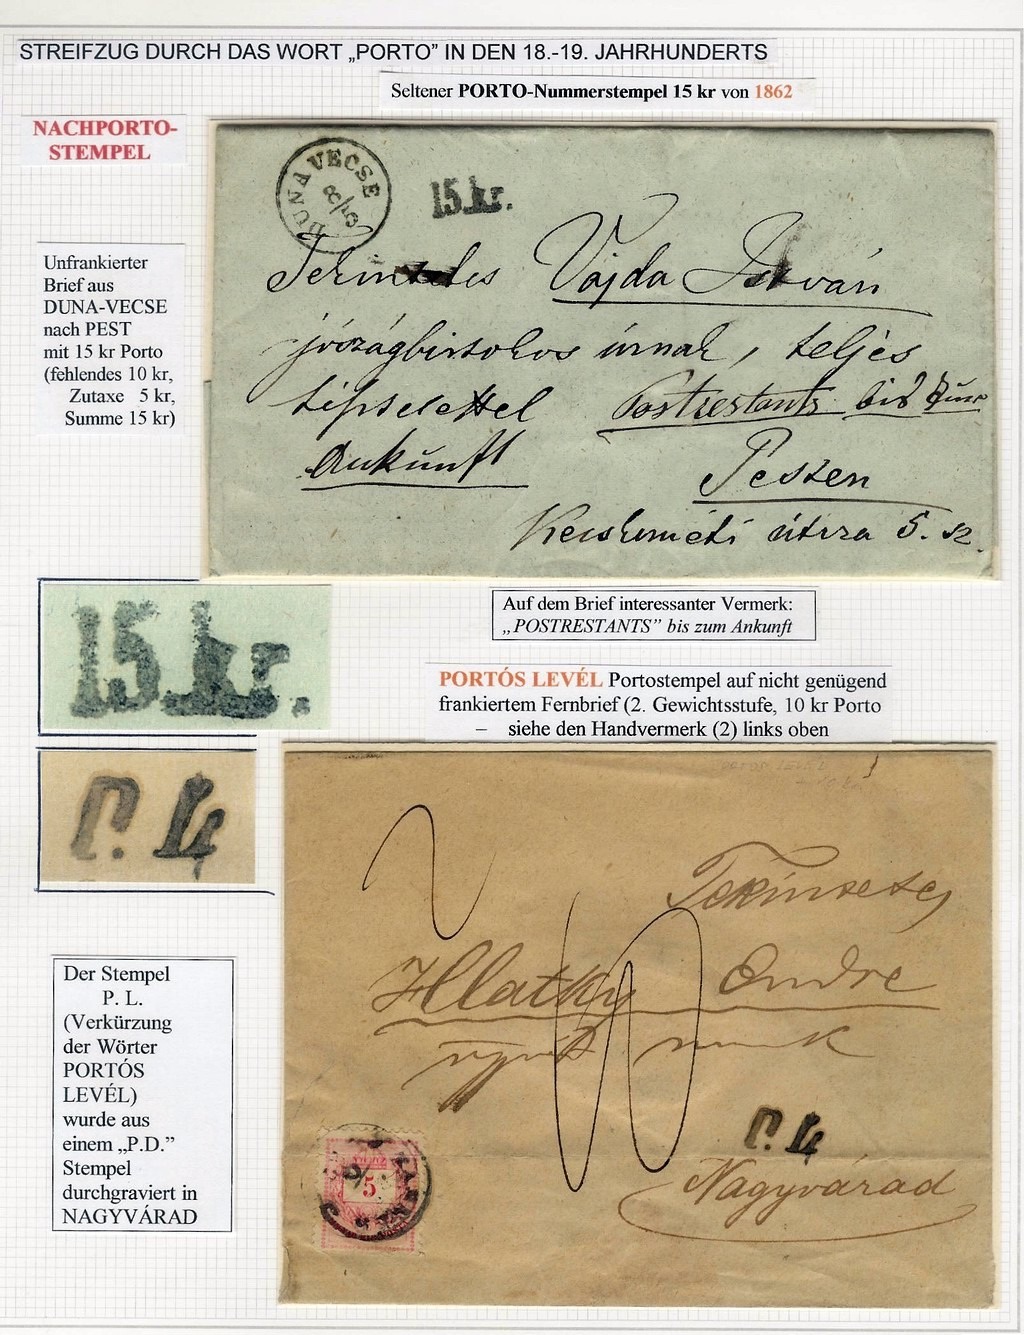 STREIFZUG DURCH DAS WORT „PORTO” IN DEN 18.-19. JAHRHUNDERTS
Seltener PORTO-Nummerstempel 15 kr von 1862
NACHPORTO-
STEMPEL
Unfrankierter
Brief aus
DUNA-VECSE
nach PEST
mit 15 kr Porto
(fehlendes 10 kr,
Zutaxe 5 kr,
Summe 15 kr)
DUNA VECSE
8/5
15.kr.
Vajda István
jószágbirtokos úrnak, teljes
tisztelettel Postrestants bis zum
Ankunft Pesten
Kecskeméti útcza 5. sz.
15.kr.
Auf dem Brief interessanter Vermerk:
„POSTRESTANTS” bis zum Ankunft
PORTÓS LEVÉL Portostempel auf nicht genügend
frankiertem Fernbrief (2. Gewichtsstufe, 10 kr Porto
– siehe den Handvermerk (2) links oben
P. L
Der Stempel
P. L.
(Verkürzung
der Wörter
PORTÓS
LEVÉL)
wurde aus
einem „P.D.”
Stempel
durchgraviert in
NAGYVÁRAD
2
10
Hlatky Endre
P. L
5
Nagyvárad